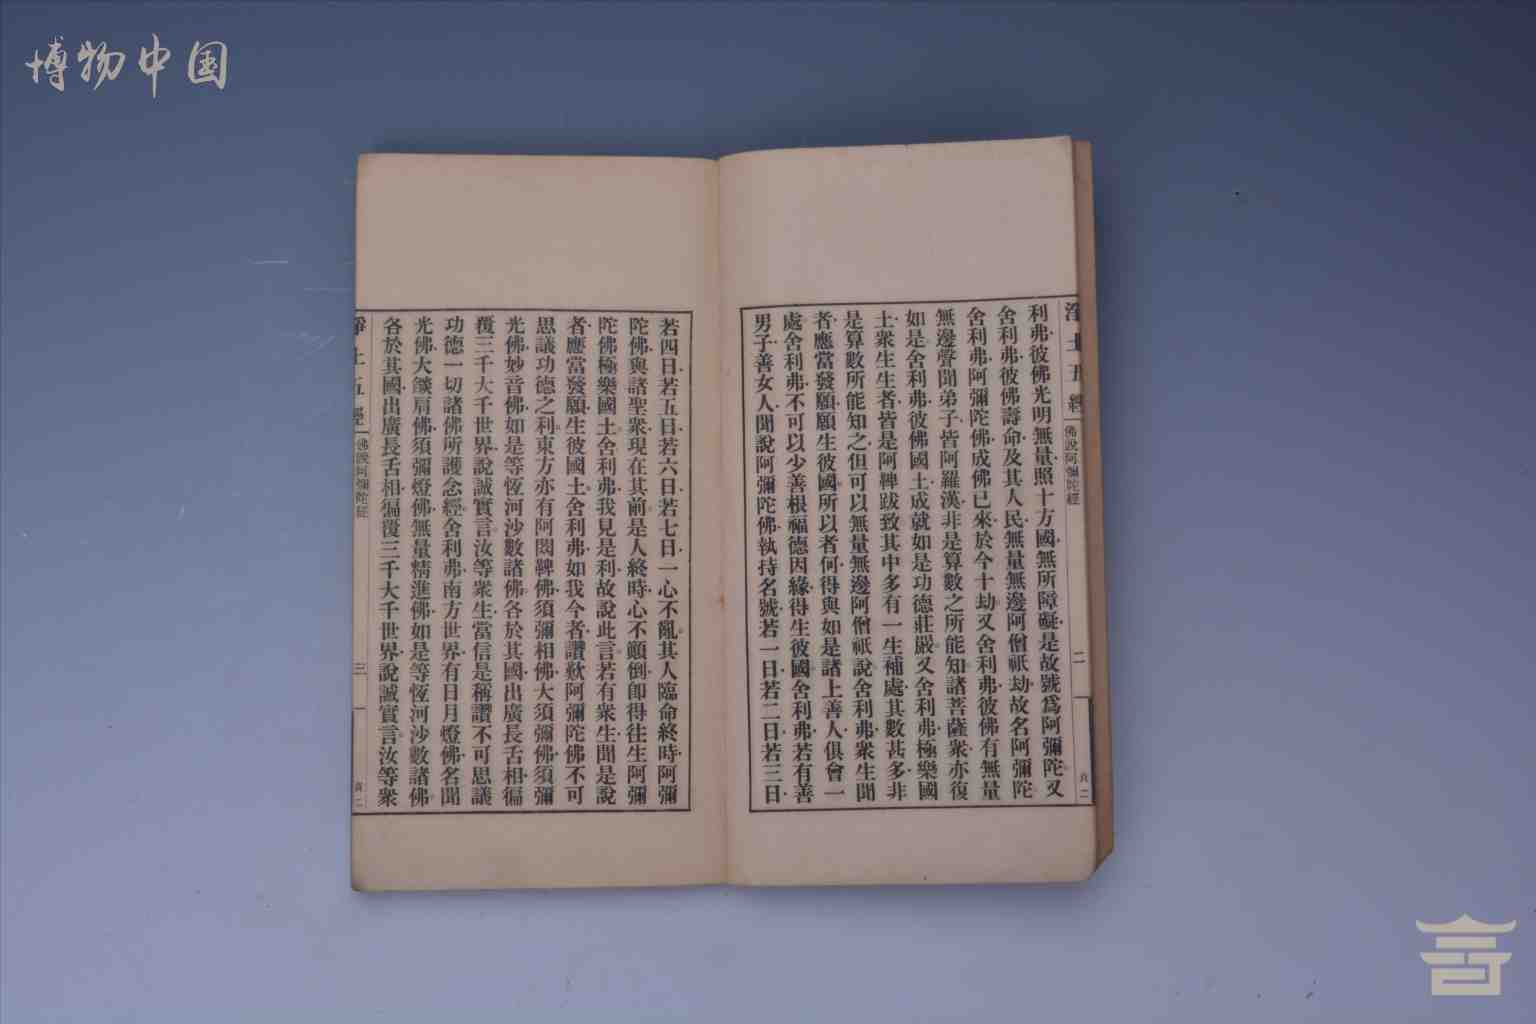 博物中国
淨土五經 佛說阿彌陀經 二
利弗彼佛光明無量照十方國無所障礙是故號爲阿彌陀又
舍利弗彼佛壽命及其人民無量無邊阿僧祇劫故名阿彌陀
舍利弗阿彌陀佛成佛已來於今十劫又舍利弗彼佛有無量
無邊聲聞弟子皆阿羅漢非是算數之所能知諸菩薩衆亦復
如是舍利弗彼佛國土成就如是功德莊嚴又舍利弗極樂國
土衆生生者皆是阿鞞跋致其中多有一生補處其數甚多非
是算數所能知之但可以無量無邊阿僧祇說舍利弗衆生聞
者應當發願願生彼國所以者何得與如是諸上善人俱會一
處舍利弗不可以少善根福德因緣得生彼國舍利弗若有善
男子善女人聞說阿彌陀佛執持名號若一日若二日若三日
若四日若五日若六日若七日一心不亂其人臨命終時阿彌
陀佛與諸聖衆現在其前是人終時心不顚倒卽得往生阿彌
陀佛極樂國土舍利弗我見是利故說此言若有衆生聞是說
者應當發願生彼國土舍利弗如我今者讚歎阿彌陀佛不可
思議功德之利東方亦有阿閦鞞佛須彌相佛大須彌佛須彌
光佛妙音佛如是等恆河沙數諸佛各於其國出廣長舌相徧
覆三千大千世界說誠實言汝等衆生當信是稱讚不可思議
功德一切諸佛所護念經舍利弗南方世界有日月燈佛名聞
光佛大燄肩佛須彌燈佛無量精進佛如是等恆河沙數諸佛
各於其國出廣長舌相徧覆三千大千世界說誠實言汝等衆
淨土五經 佛說阿彌陀經 三